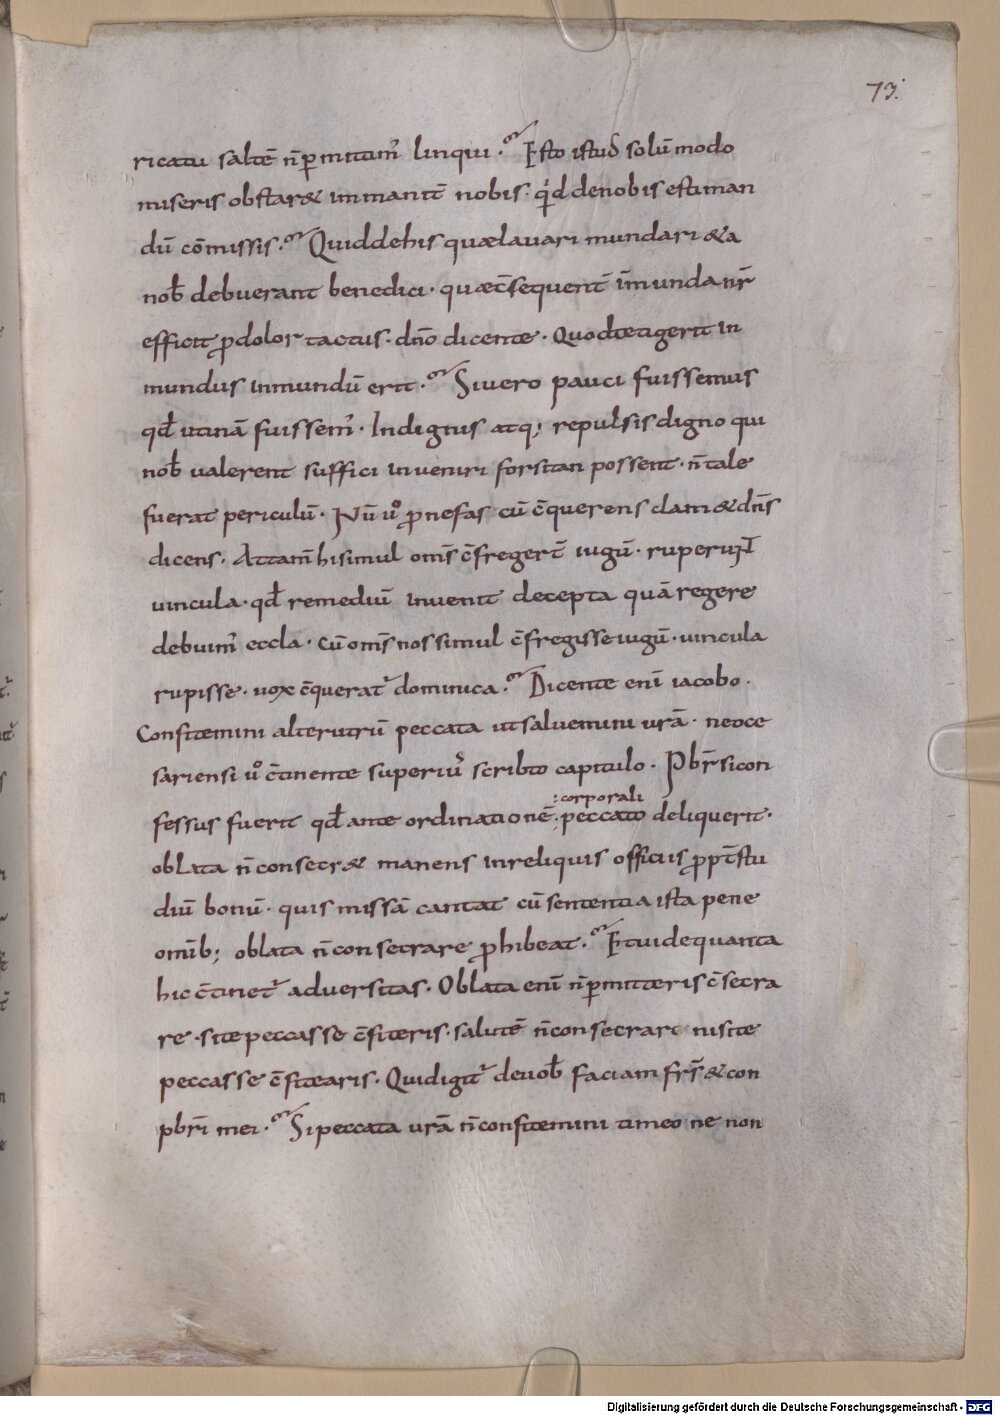 73.
ricatu saltē n̄ p̱mittim᷒ linqui. Esto istud solū modo
miseris obstar& immanit̄ nobis. qͥd denobis estiman
dū cōmissis. Quid dehis quælauari mundari &a
nob̄ debuerant benedici. quæ c̄sequent̄ īmunda nr̄
efficit ꝓdolor tactus. dn̄o dicente. Quod tetigerit in
mundus inmundū erit. Si uero pauci fuissemus
qd̄ utinā fuissem᷒. Indignis atq; repulsis digno qui
nob̄ ualerent suffici inueniri forsitan possent. n̄ tale
fuerat periculū. Nū uͦ ꝓ nefas cū c̄querens clam& dn̄s
dicens. Attam̄ hi simul om̄s c̄fregert̄ iugū. ruperunt
uincula. qd̄ remediū inuenit decepta quā regere
debuim᷒ eccla. Cū om̄s nos simul c̄fregisse iugū. uincula
rupisse. uox c̄querat᷒ dominica. Dicente eni̅ iacobo.
Confitemini alterutrū peccata ut saluemini ur̄a. neoce
sariensi uͦ c̄tinente superiu᷒s scribto capitulo. Pbr̄ si con
fessus fuerit qd̄ ante ordinationē :corporali
:peccato deliquerit.
oblata n̄ consecr& manens in reliquis officiis ꝓpt̄ stu
diū bonū. quis missā cantat cū sententia ista pene
omīb; oblata n̄ consecrare ꝓhibeat. Et uide quanta
hic c̄tinet᷒ aduersitas. Oblata enī n̄ p̱mitteris c̄secra
re. si te peccasse c̄fiteris. salutē n̄ consecrari nisi te
peccasse c̄fitearis. Quid igit᷒ de uob̄ faciam fr̄s & con
pbr̄i mei. Si peccata ur̄a n̄ confitemini timeo ne non
Digitalisierung gefördert durch die Deutsche Forschungsgemeinschaft - DFG